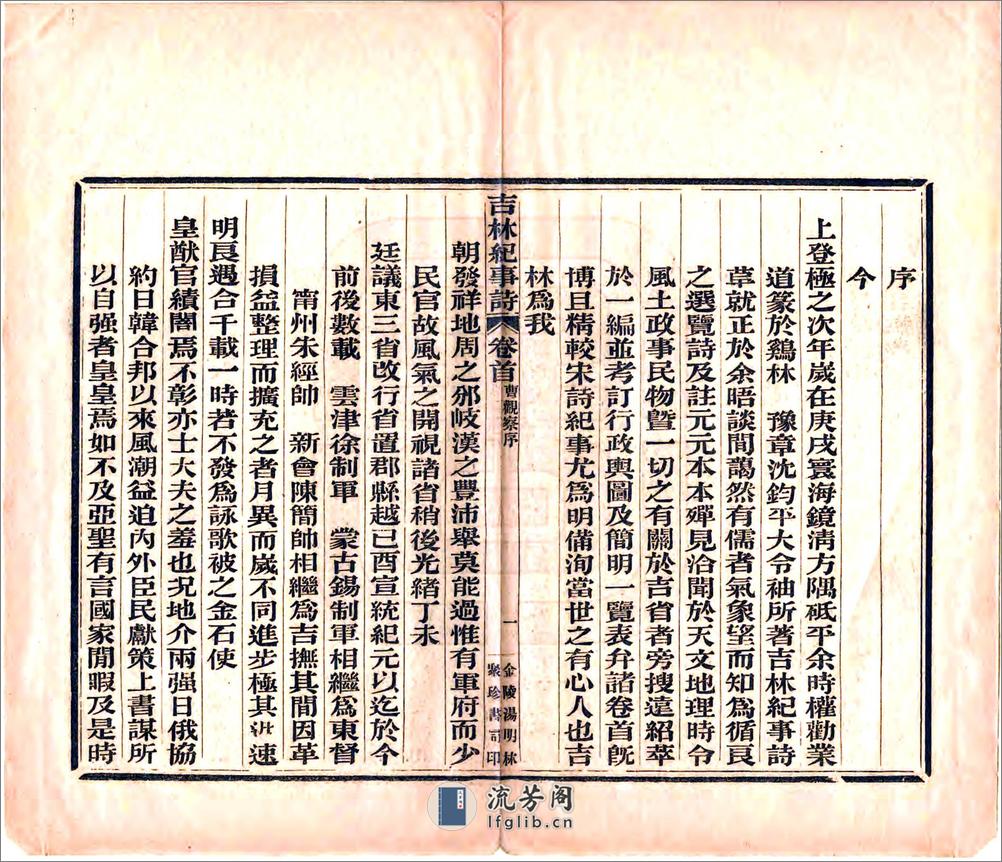 序
今
上登極之次年歲在庚戌寰海鏡淸方隅砥平余時權勸業
道篆於鷄林　豫章沈鈞平大令袖所著吉林紀事詩
草就正於余晤談間藹然有儒者氣象望而知爲循良
之選覽詩及註元元本本殫見洽聞於天文地理時令
風土政事民物曁一切之有關於吉省者旁搜遠紹萃
於一編並考訂行政輿圖及簡明一覽表弁諸卷首旣
博且精較宋詩紀事尤爲明備洵當世之有心人也吉
林爲我
吉林紀事詩　卷首　曹觀察序　一　金陵湯明林聚珍書局印
朝發祥地周之邠岐漢之豐沛舉莫能過惟有軍府而少
民官故風氣之開視諸省稍後光緒丁未
廷議東三省改行省置郡縣越已酉宣統紀元以迄於今
前後數載　雲津徐制軍　蒙古錫制軍相繼爲東督
甯州朱經帥　新會陳簡帥相繼爲吉撫其間因革
損益整理而擴充之者月異而歲不同進步極其速
明良遇合千載一時若不發爲詠歌被之金石使
皇猷官績闇焉不彰亦士大夫之羞也況地介兩强日俄協
約日韓合邦以來風潮益迫內外臣民獻策上書謀所
以自强者皇皇焉如不及亞聖有言國家閒暇及是時
流芳阁
lfglib.cn